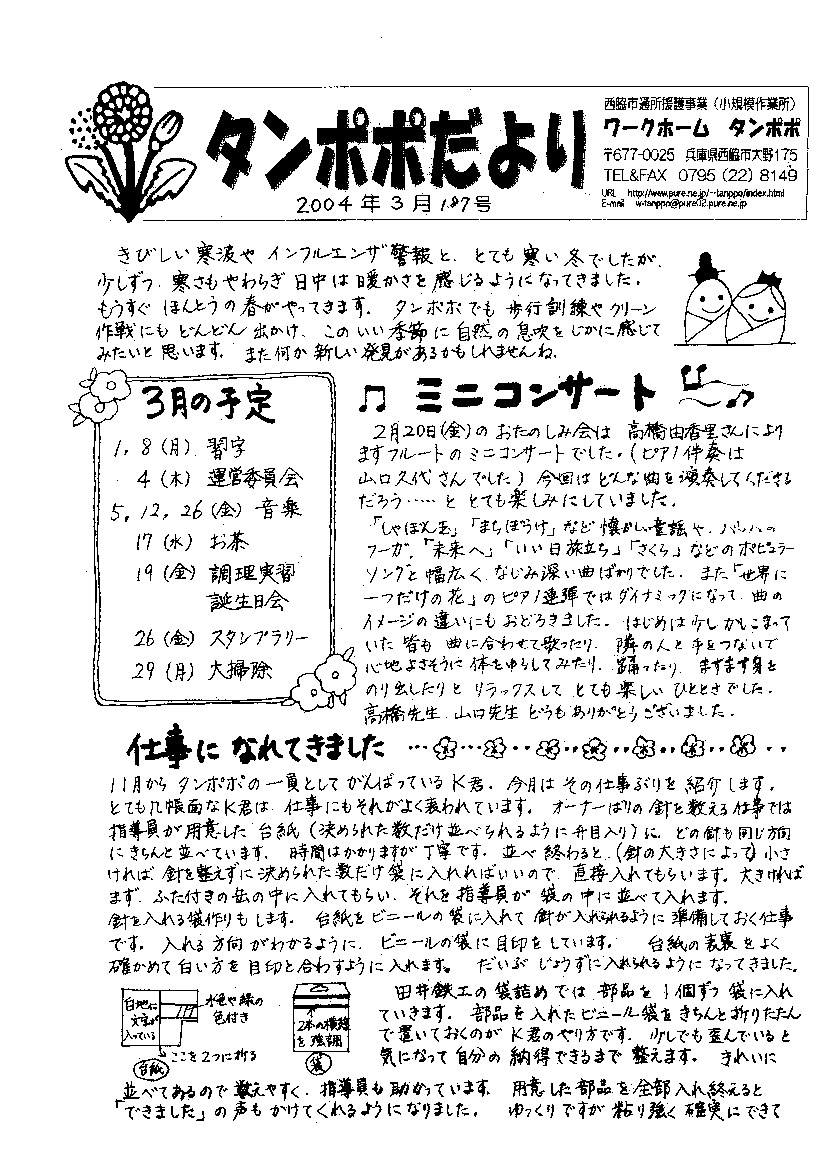 タンポポだより
2004年3月187号
西脇市通所援護事業（小規模作業所）
ワークホーム タンポポ
〒677-0025 兵庫県西脇市大野175
TEL&FAX 0795 (22) 8149
URL http://www.pure.ne.jp/~tanppo/index.html
E-mail w-tanppo@pure02.pure.ne.jp
きびしい寒波や インフルエンザ警報と、とても寒い冬でしたが、
少しずつ 寒さもやわらぎ 日中は暖かさを感じるようになってきました。
もうすぐ ほんとうの春がやってきます。 タンポポでも 歩行訓練や クリーン
作戦にも どんどん 出かけ、このいい季節に自然の息吹をじかに感じて
みたいと思います。 また何か新しい発見があるかもしれませんね。
3月の予定
1, 8 (月) 習字
4 (木) 運営委員会
5, 12, 26 (金) 音楽
17 (水) お茶
19 (金) 調理実習
誕生日会
26 (金) スタンプラリー
29 (月) 大掃除
♫ ミニコンサート
2月20日(金)の おたのしみ会は 高橋由香里さんにより
ますフルートの ミニコンサートでした。（ピアノ伴奏は
山口久代さんでした）今回は どんな曲を演奏してくださる
だろう‥‥‥と とても楽しみにしていました。
「しゃぼん玉」「まちぼうけ」など 懐かしい童謡や、バッハの
フーガ、「未来へ」「いい日旅立ち」「さくら」などのポピュラー
ソングと 幅広く、なじみ深い曲ばかりでした。 また「世界に
一つだけの花」のピアノ連弾ではダイナミックになって、曲の
イメージの違いにもおどろきました。 はじめは少しかしこまって
いた皆も 曲に合わせて歌ったり、隣の人と手をつないで
心地よさそうに体をゆらしてみたり、踊ったり、ますます身を
のり出したりと リラックスして とても楽しい ひとときでした。
高橋先生、山口先生 どうもありがとうございました。
仕事に なれてきました
11月から タンポポの一員として がんばっている K君。今月は その仕事ぶりを 紹介します。
とても几帳面なK君は、仕事にもそれがよく表われています。 オーナーばりの針を数える仕事では
指導員が用意した 台紙（決められた数だけ並べられるように升目入り）に、どの針も同じ方向
にきちんと並べています。 時間はかかりますが丁寧です。並べ終わると、（針の大きさによって）小さ
ければ 針を整えずに決められた数だけ袋に入れればいいので、直接入れてもらいます。大きければ
まず、ふた付きの缶の中に入れてもらい、それを指導員が 袋の中に並べて入れます。
針を入れる袋作りもします。 台紙をビニールの袋に入れて 針が入れられるように 準備しておく仕事
です。 入れる方向がわかるように、ビニールの袋に目印をしています。 台紙の表裏をよく
確かめて 白い方を目印と合わすように入れます。 だいぶ じょうずに入れられるように なってきました。
白地に
文字が
入っている
水色や緑の
色付き
ここを2つに折る
台紙
2本の横線
を強調
袋
田井鉄工の袋詰めでは 部品を 1個ずつ 袋に入れ
ていきます。 部品を入れたビニール袋をきちんと折りたたん
で置いておくのが K君のやり方です。 少しでも歪んでいると
気になって 自分の 納得できるまで 整えます。 きれいに
並べてあるので 数えやすく、指導員も 助かっています。 用意した部品を全部入れ終えると
「できました」の声もかけてくれるようになりました。 ゆっくりですが 粘り強く 確実にできて